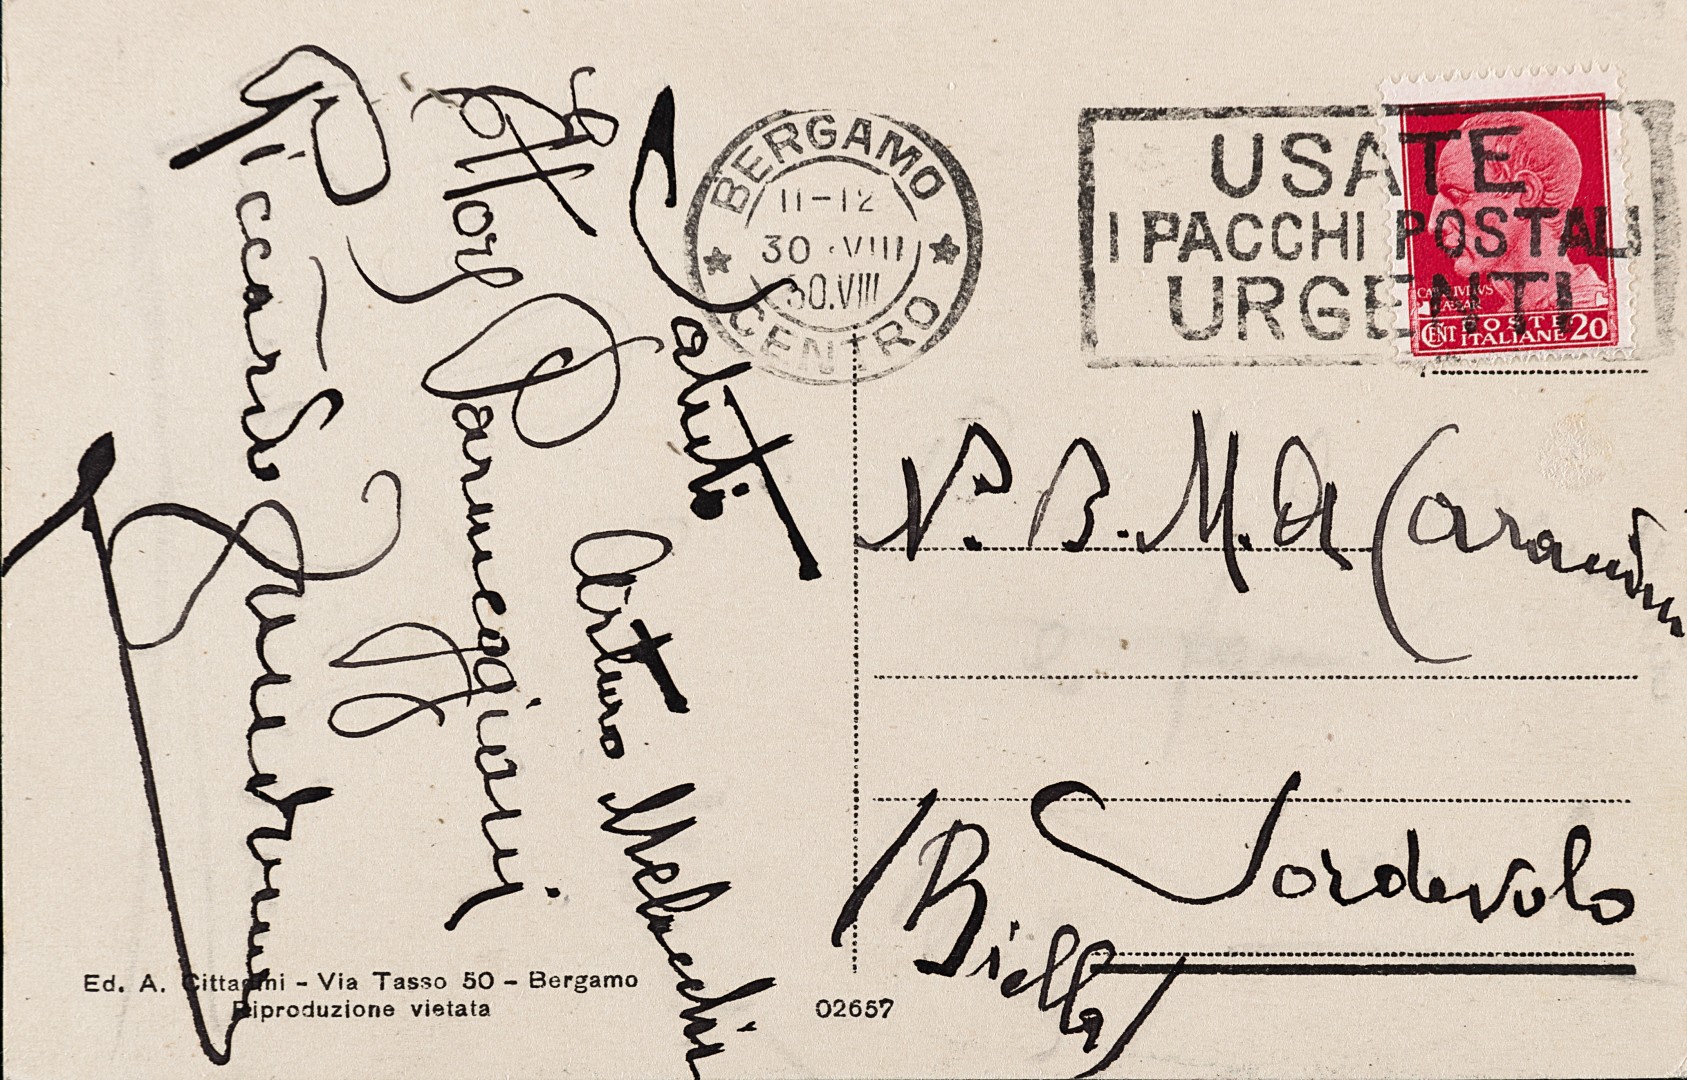 Saluti
Arturo Melocchi
Ettore Parmeggiani
Riccardo
BERGAMO
11-12
30 · VIII
30.VIII
CENTRO
USATE
I PACCHI POSTALI
URGENTI
CAESAR
CENT 20
POSTE
ITALIANE
N. B. M. A
Sordevolo
(Biella)
Ed. A. Cittadini - Via Tasso 50 - Bergamo
Riproduzione vietata
02657